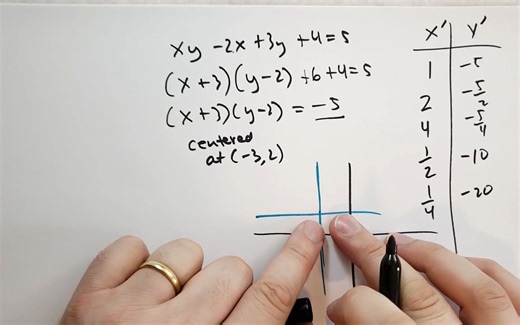 xy -2x +3y +4 = 5
(x+3)(y-2) +6+4=5
(x+3)(y-2) = -5
centered
at (-3,2)
x' y'
1 -5
2 -5/2
4 -5/4
1/2 -10
1/4 -20